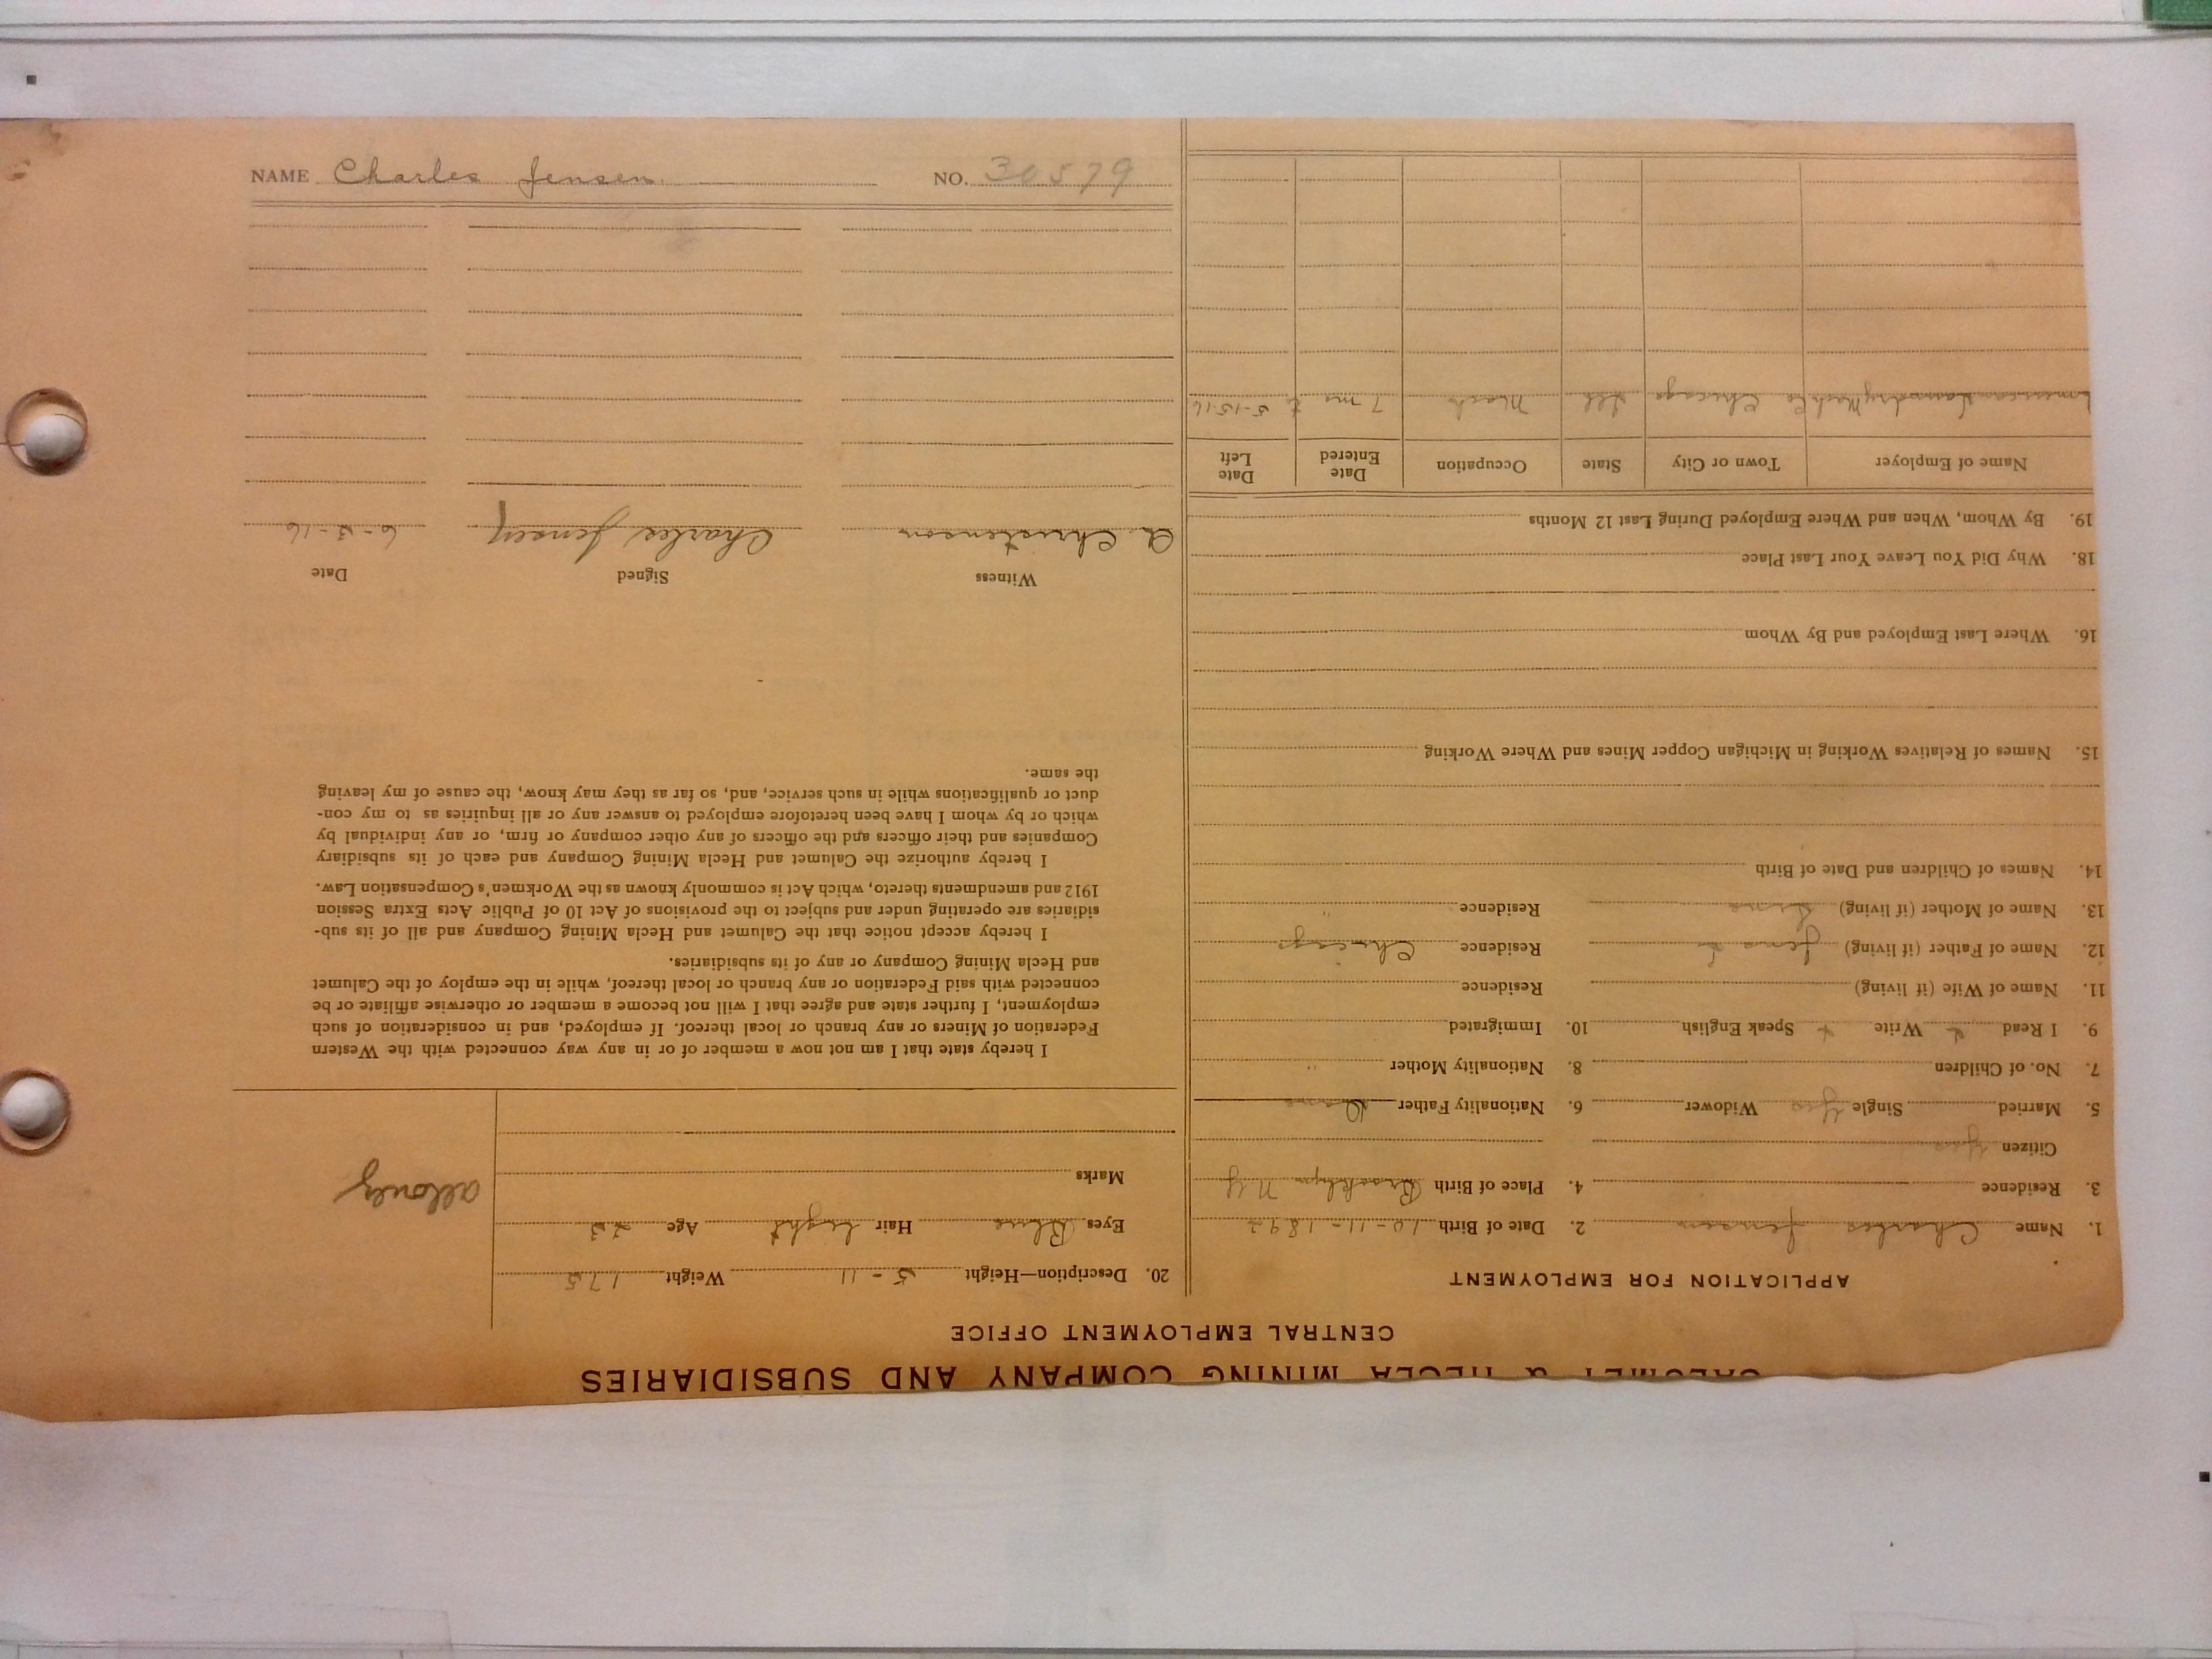 CALUMET & HECLA MINING COMPANY AND SUBSIDIARIES
CENTRAL EMPLOYMENT OFFICE
APPLICATION FOR EMPLOYMENT
1. Name Charles Jensen 2. Date of Birth 10-11-1892
3. Residence 4. Place of Birth Brooklyn N.Y
Citizen Yes
5. Married Single Yes Widower 6. Nationality Father Dane
7. No. of Children 8. Nationality Mother "
9. I Read Write Speak English 10. Immigrated
11. Name of Wife (if living) Residence
12. Name of Father (if living) Residence Chicago
13. Name of Mother (if living) Residence "
14. Names of Children and Date of Birth
15. Names of Relatives Working in Michigan Copper Mines and Where Working
16. Where Last Employed and By Whom
18. Why Did You Leave Your Last Place
19. By Whom, When and Where Employed During Last 12 Months
Name of Employer Town or City State Occupation Date Entered Date Left
American Laundry Mach Co Chicago Ill Mach 7 mo to 5-15-16
20. Description—Height 5-11 Weight 175
Eyes Blue Hair light Age 23
Marks
Allouez
I hereby state that I am not now a member of or in any way connected with the Western
Federation of Miners or any branch or local thereof. If employed, and in consideration of such
employment, I further state and agree that I will not become a member or otherwise affiliate or be
connected with said Federation or any branch or local thereof, while in the employ of the Calumet
and Hecla Mining Company or any of its subsidiaries.
I hereby accept notice that the Calumet and Hecla Mining Company and all of its sub-
sidiaries are operating under and subject to the provisions of Act 10 of Public Acts Extra Session
1912 and amendments thereto, which Act is commonly known as the Workmen's Compensation Law.
I hereby authorize the Calumet and Hecla Mining Company and each of its subsidiary
Companies and their officers and the officers of any other company or firm, or any individual by
which or by whom I have been heretofore employed to answer any or all inquiries as to my con-
duct or qualifications while in such service, and, so far as they may know, the cause of my leaving
the same.
Witness Signed Date
A. Christenson Charles Jensen 6-3-16
NAME Charles Jensen. NO. 30579